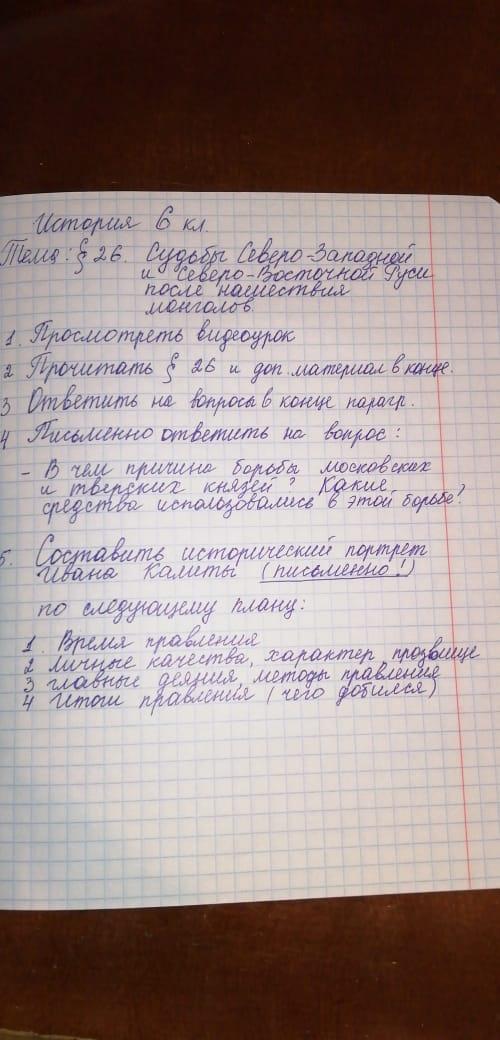 История 6 кл.
Тема: § 26. Судьбы Северо-Западной
и Северо-Восточной Руси
после нашествия
монголов.
1. Просмотреть видеоурок
2 Прочитать § 26 и доп. материал в конце.
3 Ответить на вопросы в конце парагр.
4 Письменно ответить на вопрос:
- В чем причина борьбы московских
и тверских князей? Какие
средства использовались в этой борьбе?
5. Составить исторический портрет
Ивана Калиты (письменно!)
по следующему плану:
1. Время правления
2 личные качества, характер прозвище
3 главные деяния, методы правления
4 Итоги правления (чего добился)